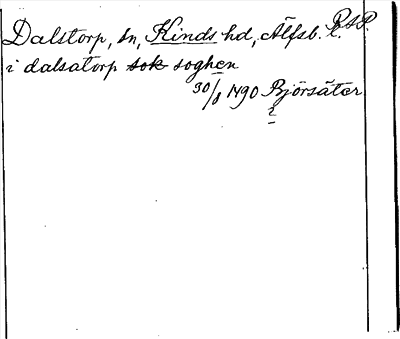 Dalstorp, sn, Kinds hd, Älfsb. l. R.A.P.
i dalsatorp sok soghen
30/8 1490 Björsäter
2